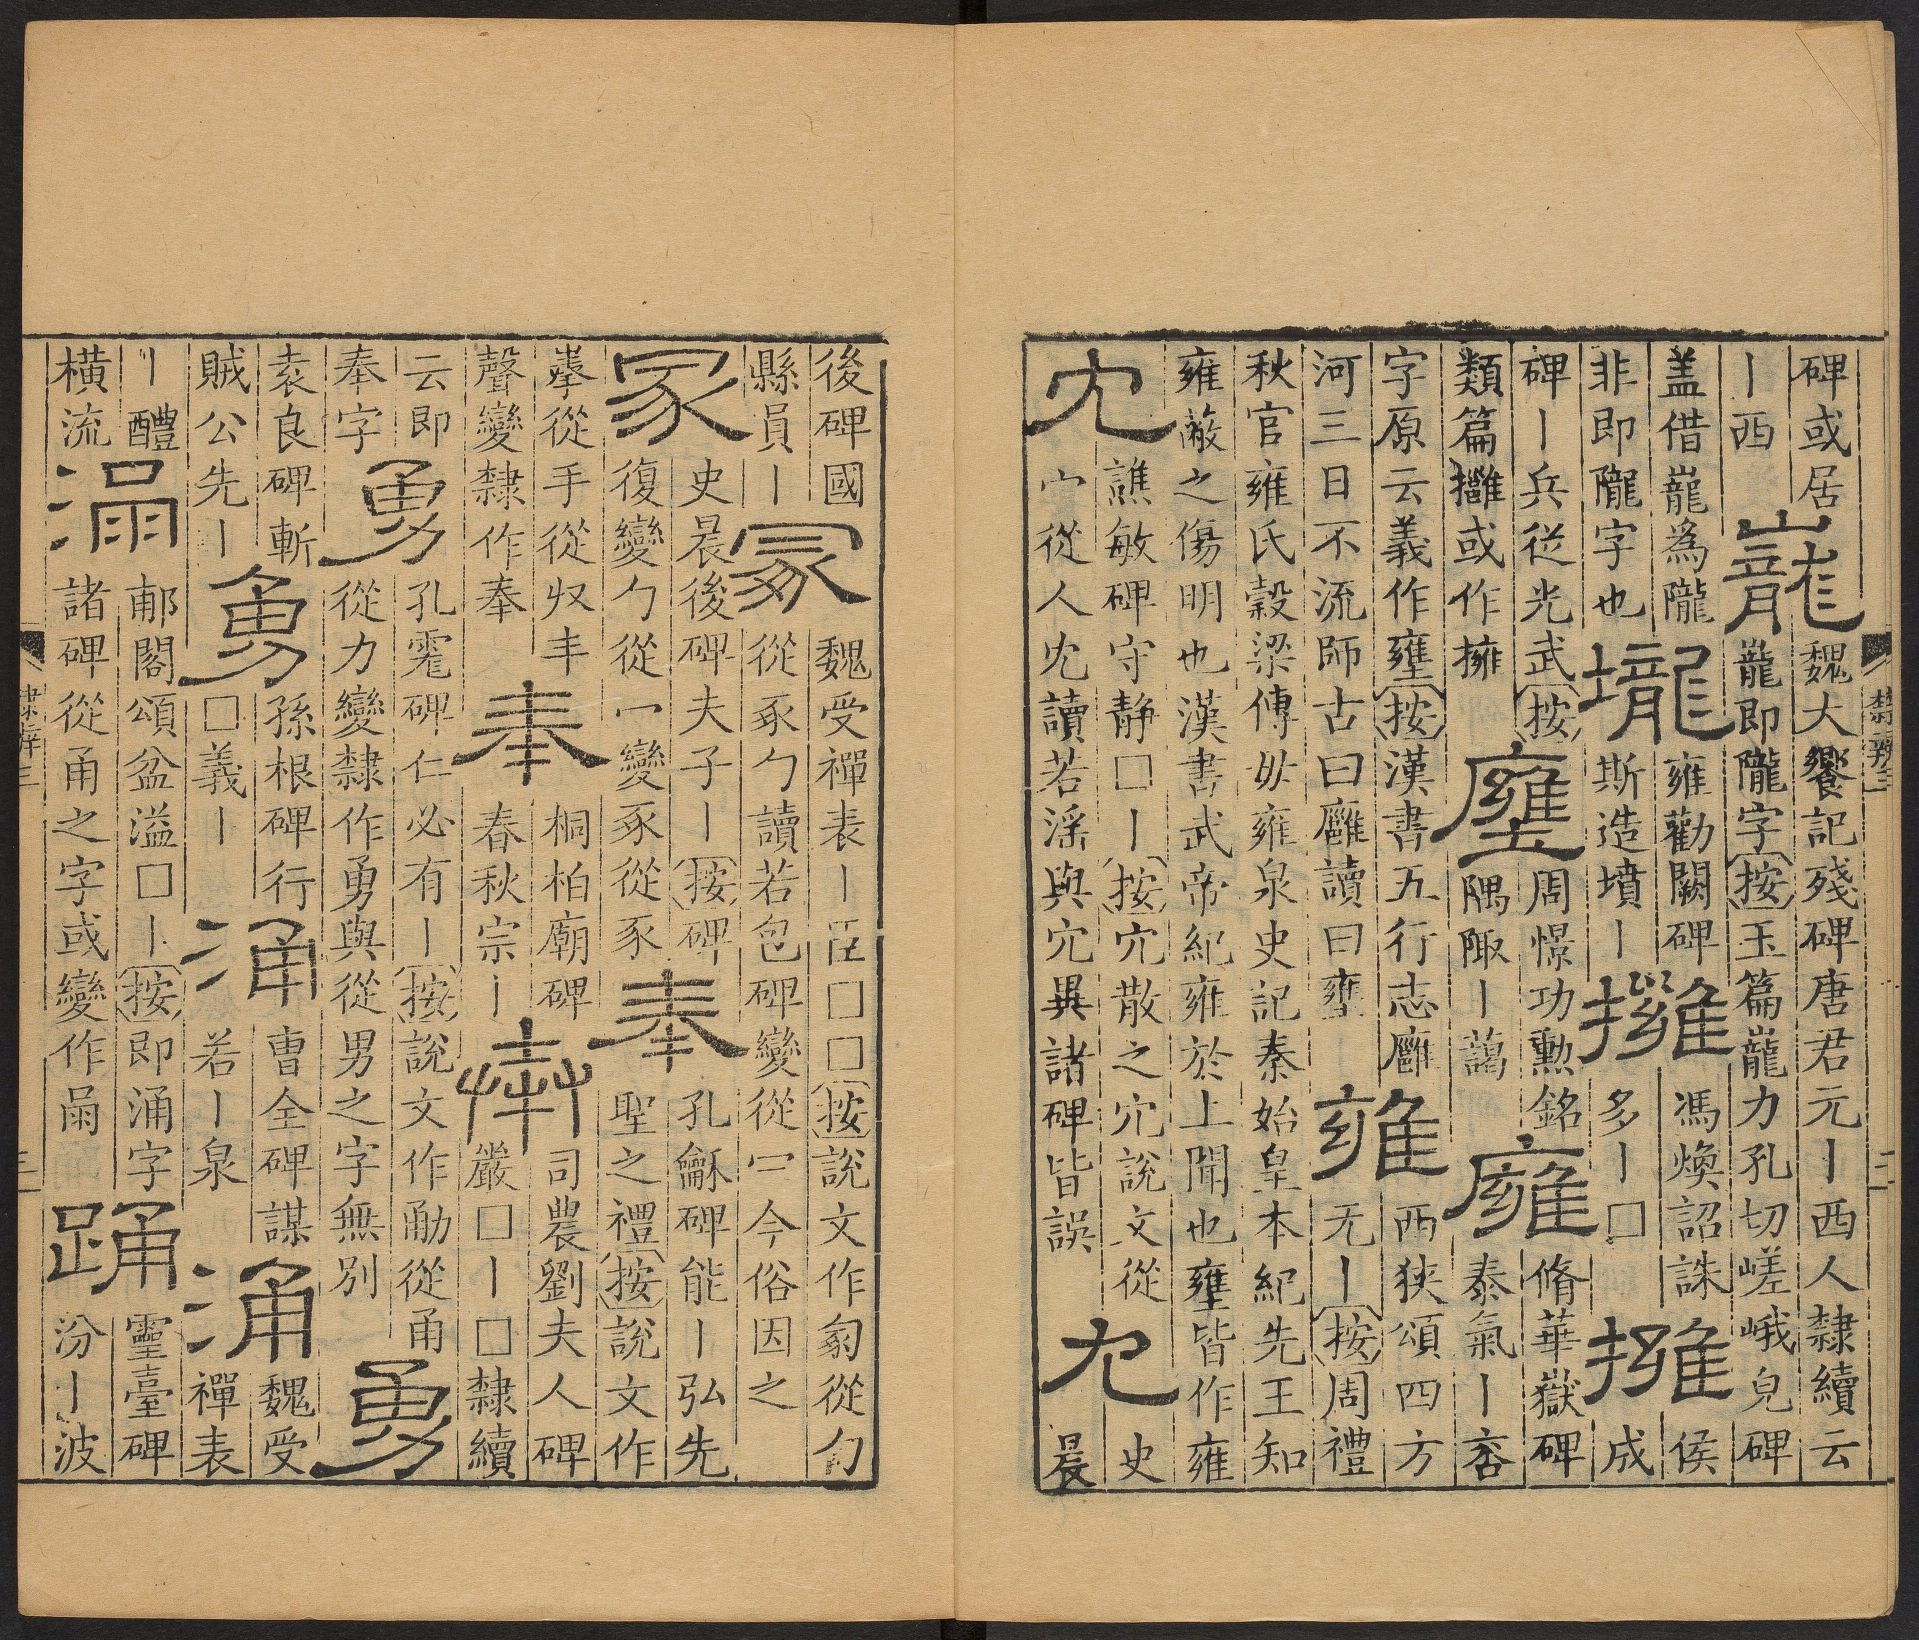 碑或居
丨西
巃
魏大饗記殘碑唐君元丨西人隸續云
巃即隴字按玉篇巃力孔切嵯峨皃碑
盖借巃爲隴
非即隴字也
壠
雍勸闕碑
斯造墳丨
擁
馮煥詔誅
多丨□
擁
侯
成
碑丨兵從光武按
類篇𢹬或作擁
壅
周憬功勳銘
隅陬丨藹
廱
脩華嶽碑
泰氣丨否
字原云義作壅按漢書五行志廱
河三日不流師古曰廱讀曰壅
雍
西狹頌四方
无丨按周禮
秋官雍氏穀梁傳毋雍泉史記秦始皇本紀先王知
雍蔽之傷明也漢書武帝紀雍於上聞也壅皆作雍
冘
譙敏碑守静□丨按宂散之宂說文從
宀從人冘讀若淫與宂異諸碑皆誤
冘
史
晨
隸辨三
二
後碑國
縣員丨
冢
魏受禪表丨□□按說文作冢從勹
從豖勹讀若包碑變從冖今俗因之
冢
史晨後碑夫子丨按碑
復變勹從冖變豖從豕
奉
孔龢碑能丨弘先
聖之禮按說文作
𢍏從手從収丰
聲變隸作奉
奉
桐柏廟碑
春秋宗丨
奉
司農劉夫人碑
嚴□丨□隸續
云即
奉字
勇
孔宙碑仁必有丨按說文作勈從甬
從力變隸作勇與從男之字無別
勇
袁良碑斬
賊公先丨
勇
孫根碑行
□義丨
涌
曹全碑謀
若丨泉
涌
魏受
禪表
丨醴
横流
涌
郙閣頌盆溢□丨按即涌字
諸碑從甬之字或變作𤰏
踊
靈臺碑
汾丨波
隸辨三
三